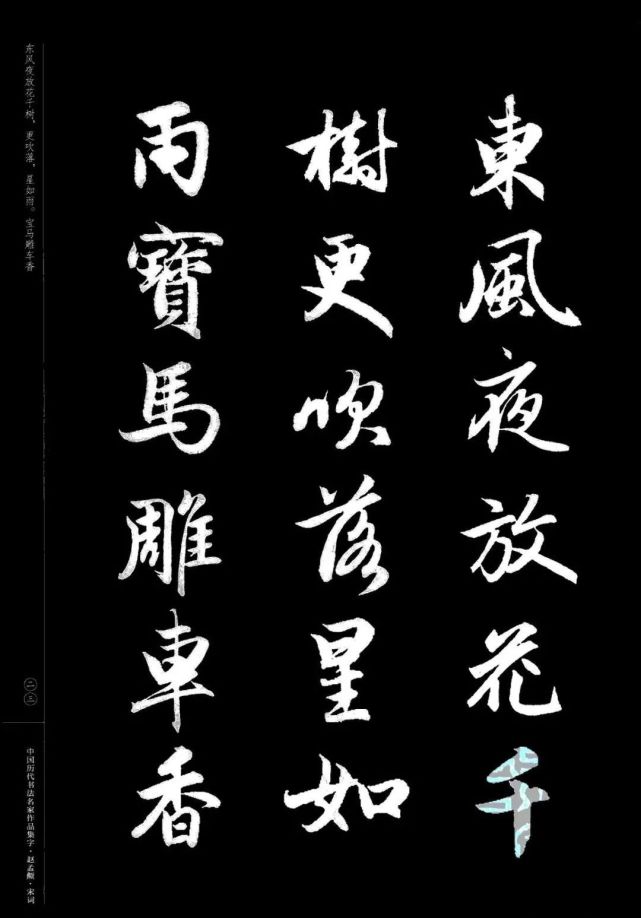 東風夜放花千
樹更吹落星如
雨寶馬雕車香
东风夜放花千树。更吹落，星如雨。宝马雕车香
二三
中国历代书法名家作品集字·赵孟頫·宋词